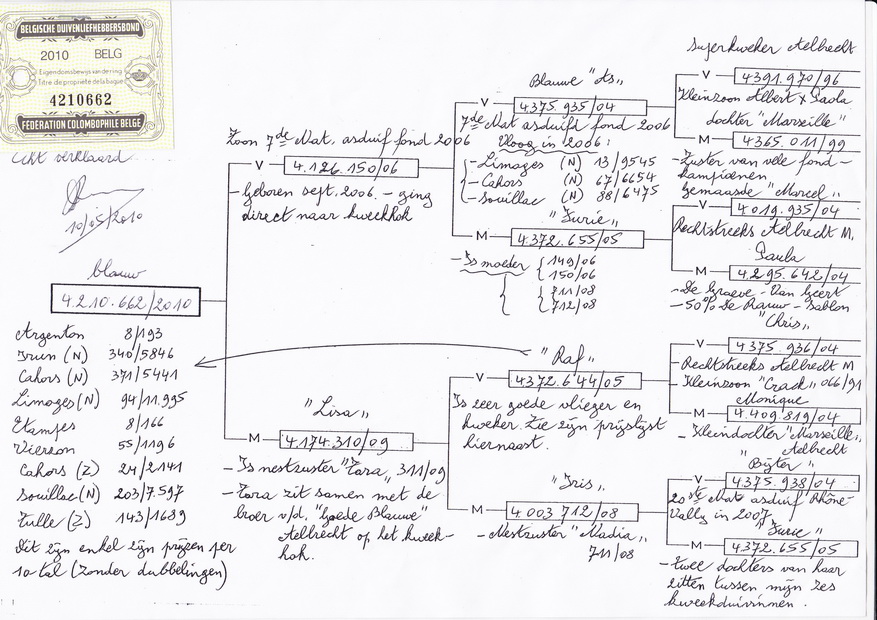 BELGISCHE DUIVENLIEFHEBBERSBOND
2010 BELG
Eigendomsbewijs van de ring
Titre de propriété de la bague
4210662
FEDERATION COLOMBOPHILE BELGE
Echt verklaard
10/05/2010
blauw
4.210.662/2010
Argenton 8/193
Irun (N) 340/5846
Cahors (N) 371/5441
Limoges (N) 94/11.995
Etampes 8/166
Vierzon 55/1196
Cahors (Z) 24/2141
Souillac (N) 203/7.597
Tulle (Z) 143/1689
Dit zijn enkel zijn prijzen per
10-tal (zonder dubbelingen)
Zoon 7de Nat. asduif fond 2006
V 4.126.150/06
- Geboren sept. 2006 - ging
direct naar kweekhok
"Lisa"
M 4.174.310/09
- Is nestzuster "Tara" 311/09
- Tara zit samen met de
broer v/d. "Goede Blauwe"
Aelbrecht op het kweek-
hok.
Blauwe "As"
V 4375.935/04
7de Nat asduif fond 2006
Vloog in 2006:
- Limoges (N) 13/9545
- Cahors (N) 67/6654
- Souillac (N) 88/6475
"Furie"
M 4.372.655/05
- Is moeder 149/06
150/06
711/08
712/08
"Raf"
V 4372.644/05
Is zeer goede vlieger en
kweker. Zie zijn prijslijst
hiernaast.
"Iris"
M 4.003.712/08
- Nestzuster "Nadia"
711/08
Superkweker Aelbrecht
V 4391.970/96
Kleinzoon Albert x Paola
dochter "Marseille"
M 4365.011/99
- Zuster van vele fond-
kampioenen
Gemaasde "Marcel"
V 4.019.935/04
Rechtstreeks Aelbrecht M.
Paula
M 4.295.642/04
- De Graeve - Van Geert
- 50% De Rauw - Sablon
"Chris"
V 4375.936/04
- Rechtstreeks Aelbrecht M
- Kleinzoon "Crack" 066/91
Monique
M 4.409.819/04
- Kleindochter "Marseille"
Aelbrecht
"Bijter"
V 4375.938/04
20ste Nat asduif Rhône-
Vally in 2007
"Furie"
M 4372.655/05
- twee dochters van haar
zitten tussen mijn zes
kweekduivinnen.